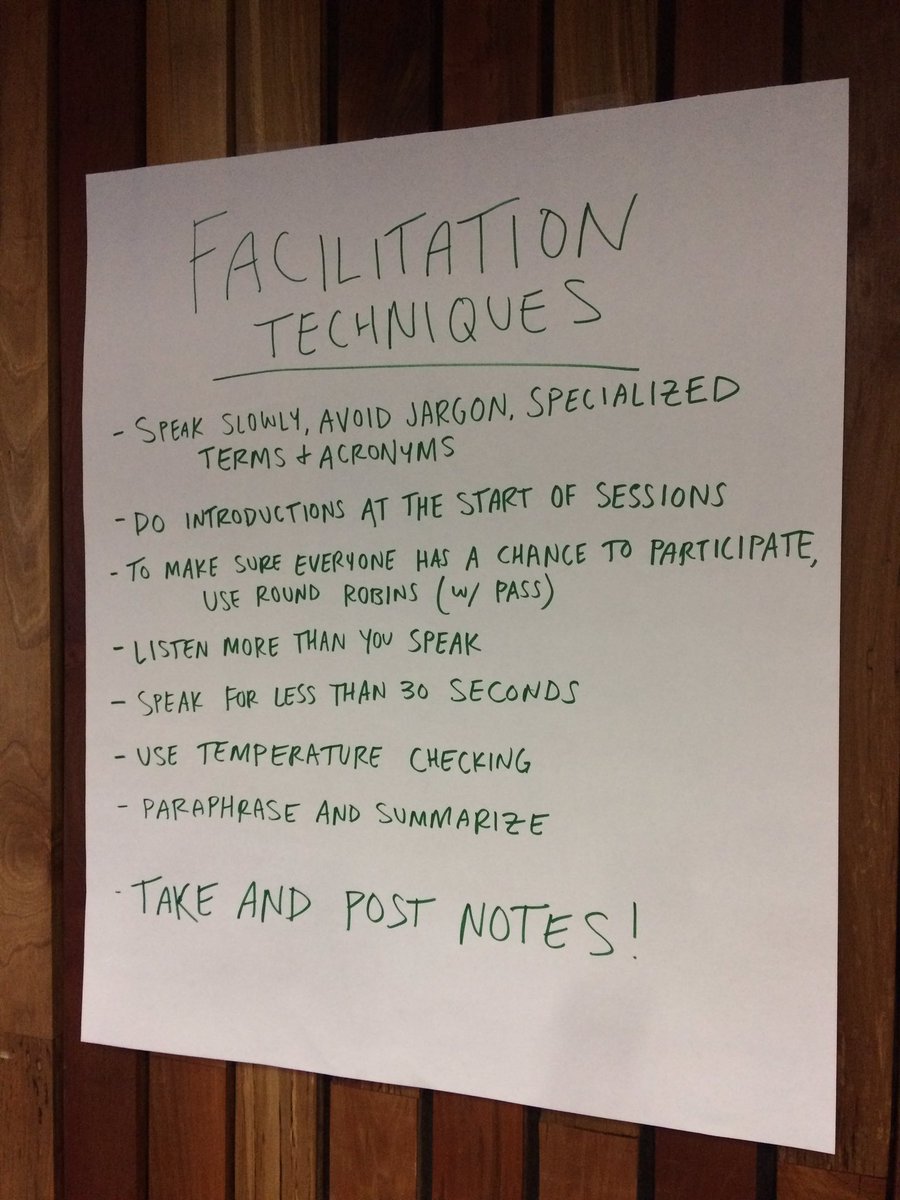 FACILITATION
TECHNIQUES
- SPEAK SLOWLY, AVOID JARGON, SPECIALIZED
TERMS + ACRONYMS
- DO INTRODUCTIONS AT THE START OF SESSIONS
- TO MAKE SURE EVERYONE HAS A CHANCE TO PARTICIPATE,
USE ROUND ROBINS (W/ PASS)
- LISTEN MORE THAN YOU SPEAK
- SPEAK FOR LESS THAN 30 SECONDS
- USE TEMPERATURE CHECKING
- PARAPHRASE AND SUMMARIZE
- TAKE AND POST NOTES!